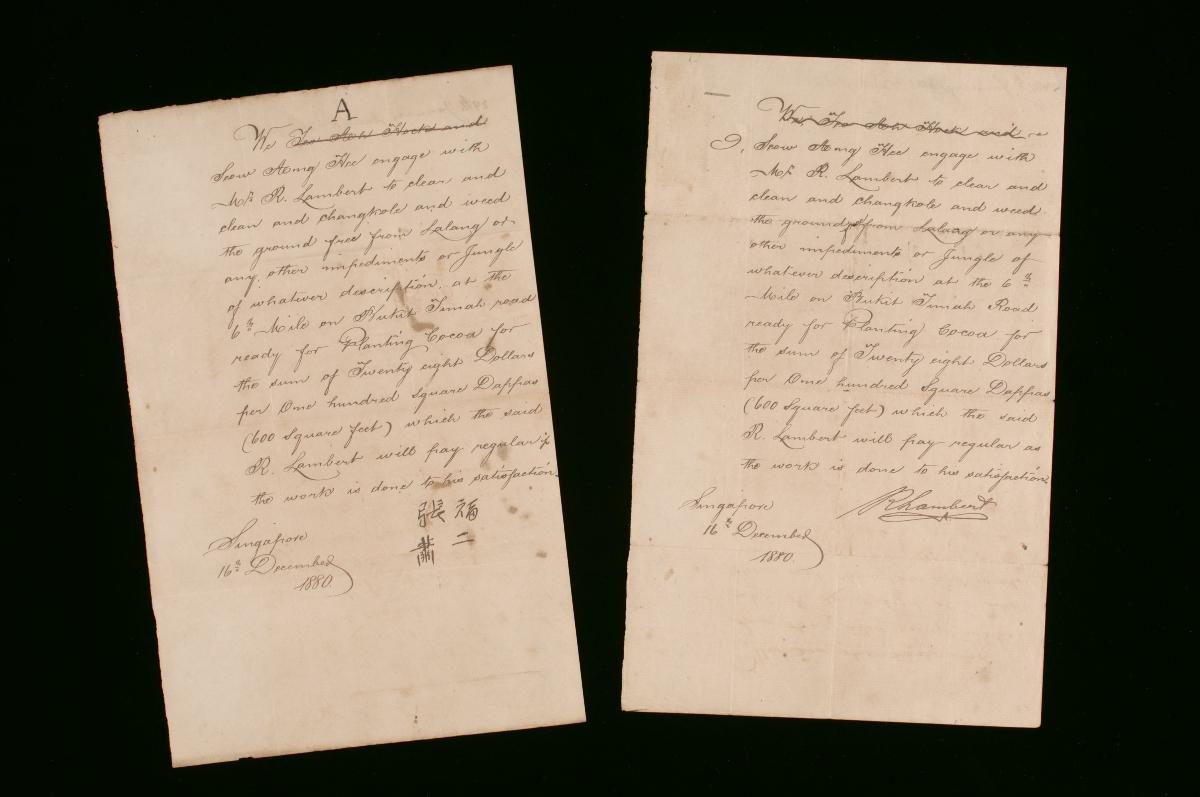 A
We Teo Ah Hock and
Seow Ang Kee engage with
Mr R. Lambert to clear and
clean and changkole and weed
the ground free from Lalang or
any other impediments or Jungle
of whatever description, at the
6th Mile on Bukit Timah road
ready for Planting Cocoa for
the sum of Twenty eight Dollars
per One hundred Square Dappas
(600 Square feet) which the said
R. Lambert will pay regular if
the work is done to his satisfaction.
張福
蕭二
Singapore
16th December
1880.
We, Teo Ah Hock and
I, Seow Ang Kee engage with
Mr R. Lambert to clear and
clean and changkole and weed
the ground from Lalang or any
other impediments or Jungle of
whatever description at the 6th
Mile on Bukit Timah Road
ready for Planting Cocoa for
the sum of Twenty eight Dollars
per One hundred Square Dappas
(600 Square feet) which the said
R. Lambert will pay regular as
the work is done to his satisfaction.
RLambert
Singapore
16th December
1880.